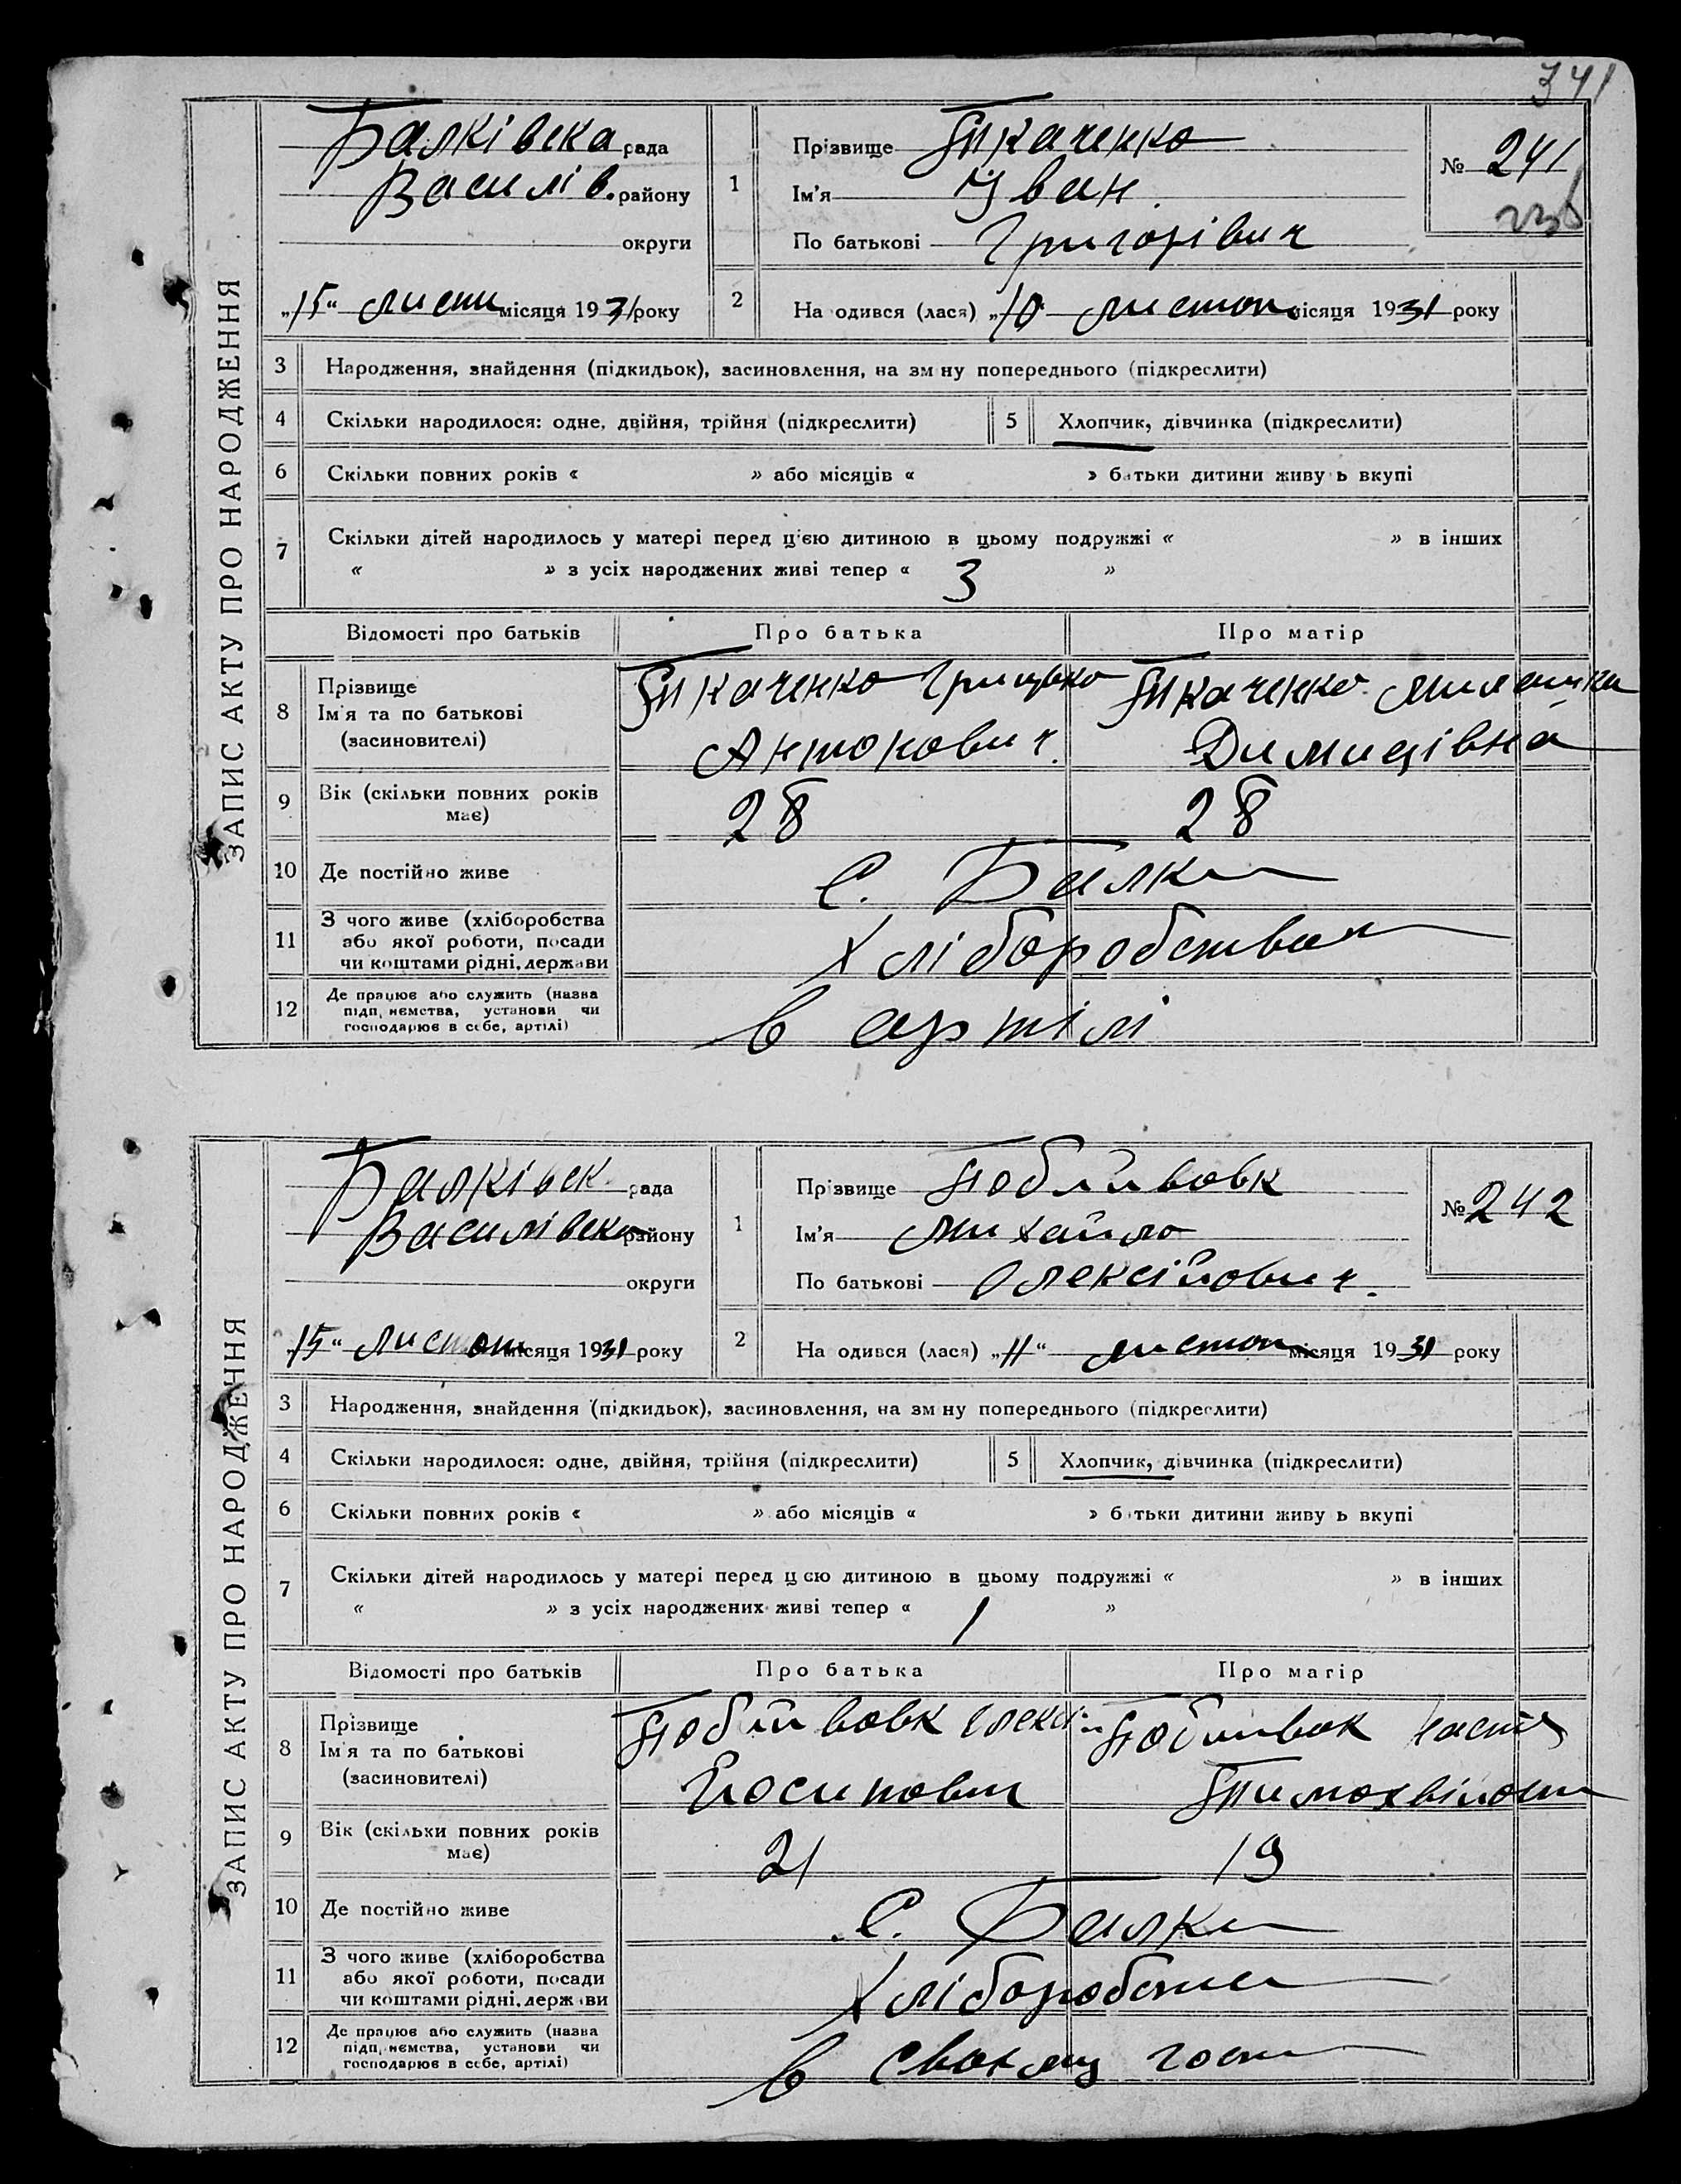 341
ЗАПИС АКТУ ПРО НАРОДЖЕННЯ
Балківська рада
Василів. району
округи
„15“ листп місяця 1931 року
1 Прізвище Ткаченко
Ім'я Іван
По батькові Григорівич
№ 241
2 На одився (лася) „10“ листоп місяця 1931 року
3 Народження, знайдення (підкидьок), засиновлення, на зм ну попереднього (підкреслити)
4 Скільки народилося: одне, двійня, трійня (підкреслити) 5 Хлопчик, дівчинка (підкреслити)
6 Скільки повних років « » або місяців « » батьки дитини живу ь вкупі
7 Скільки дітей народилось у матері перед цією дитиною в цьому подружжі « » в інших
« » з усіх народжених живі тепер « 3 »
Відомості про батьків Про батька Про матір
8 Прізвище Ім'я та по батькові (засиновителі) Ткаченко Грицько Ткаченко
Антонович Димидівна
9 Вік (скільки повних років має) 28 28
10 Де постійно живе С. Балки
11 З чого живе (хліборобства або якої роботи, посади чи коштами рідні, держави Хліборобства
12 Де працює або служить (назва підп, иємства, установи чи господарює в себе, артілі) в артілі
ЗАПИС АКТУ ПРО НАРОДЖЕННЯ
Балківськ рада
Василівськ району
округи
„15“ листоп місяця 1931 року
1 Прізвище Побийвовк
Ім'я Михайло
По батькові Олексійович.
№ 242
2 На одився (лася) „11“ листоп місяця 1931 року
3 Народження, знайдення (підкидьок), засиновлення, на зм ну попереднього (підкреслити)
4 Скільки народилося: одне, двійня, трійня (підкреслити) 5 Хлопчик, дівчинка (підкреслити)
6 Скільки повних років « » або місяців « » б тьки дитини живу ь вкупі
7 Скільки дітей народилось у матері перед цією дитиною в цьому подружжі « » в інших
« » з усіх народжених живі тепер « 1 »
Відомості про батьків Про батька Про матір
8 Прізвище Ім'я та по батькові (засиновителі) Побийвовк Олексій Побийвок Настя
Йосипович
9 Вік (скільки повних років має) 21 19
10 Де постійно живе С. Балки
11 З чого живе (хліборобства або якої роботи, посади чи коштами рідні, держ ви Хліборобства
12 Де працює або служить (назва підп, иємства, установи чи господарює в себе, артілі) в своему госп